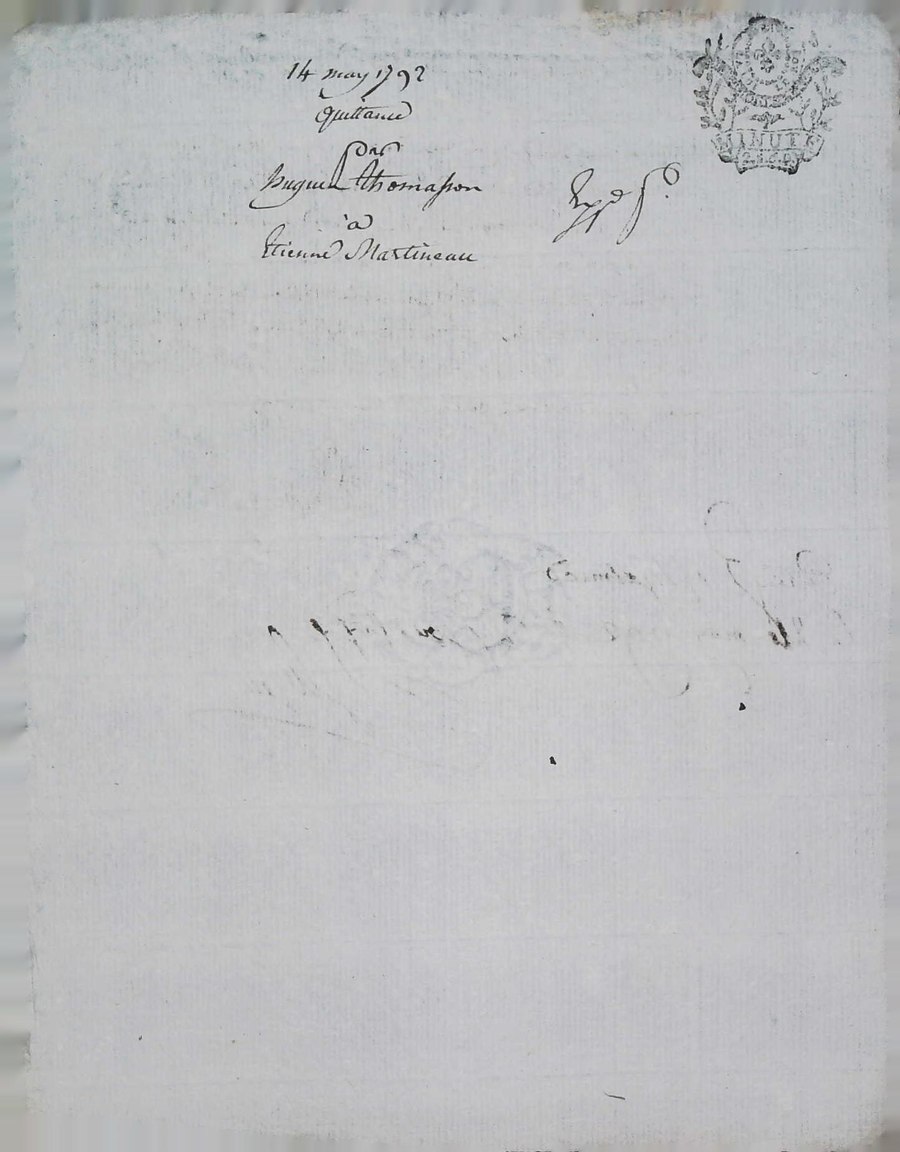 14 may 1792
Quittance
par
Hugues thomasson
à
Etienne Martineau
Exp.d
MINUTE